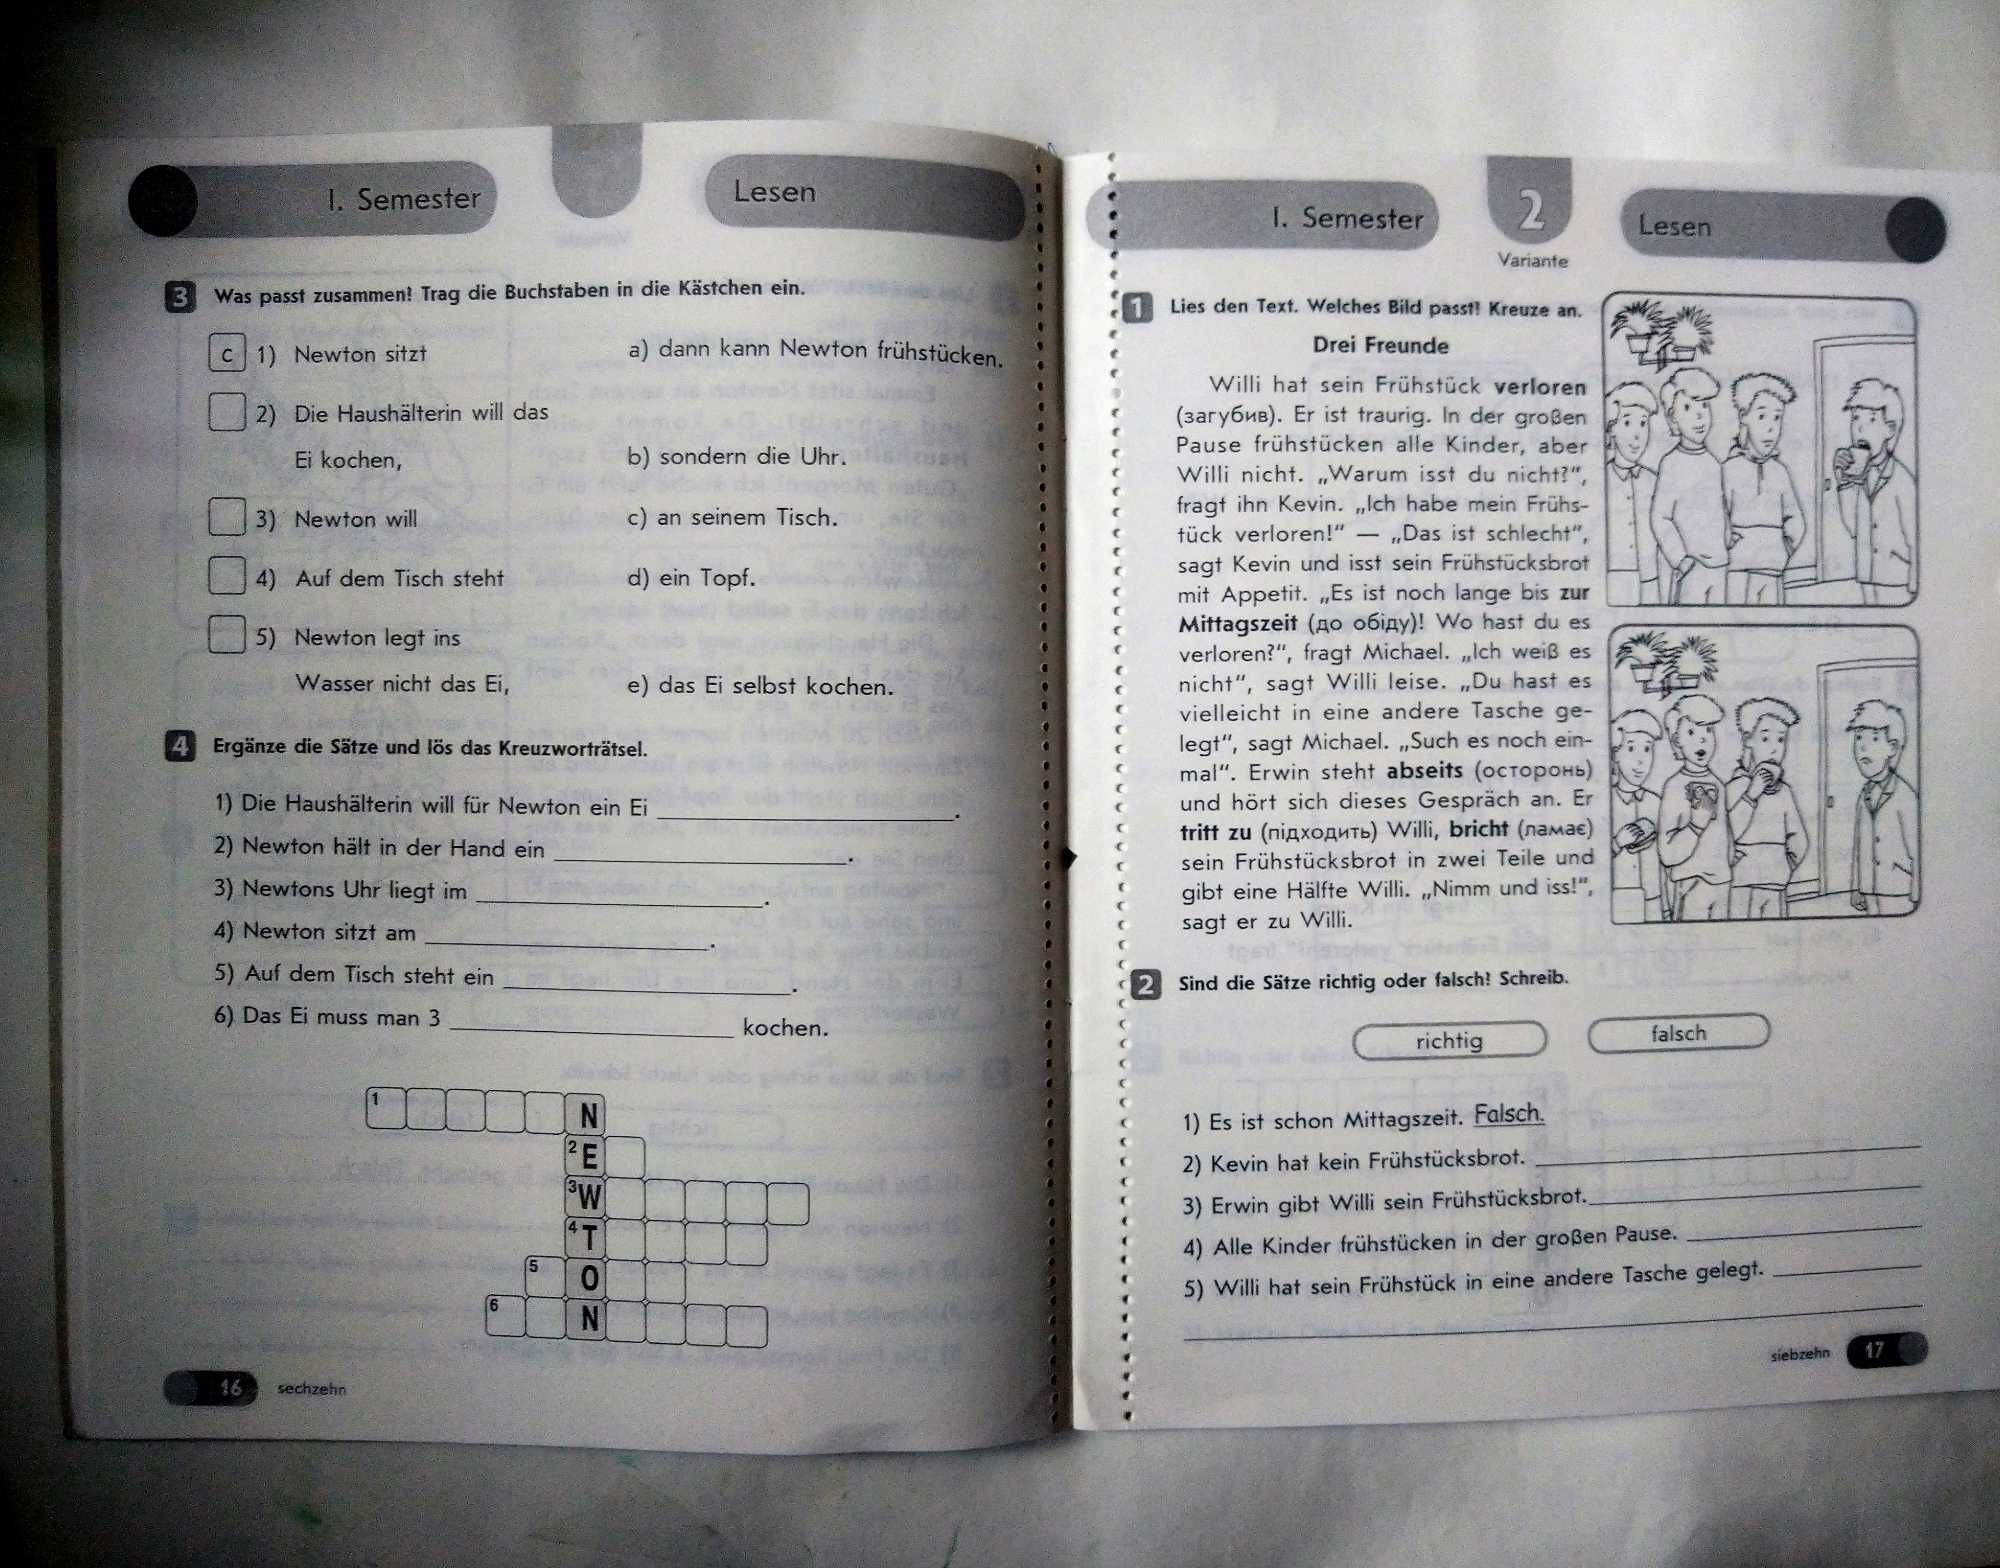 I. Semester
Lesen
3 Was passt zusammen? Trag die Buchstaben in die Kästchen ein.
c 1) Newton sitzt
a) dann kann Newton frühstücken.
2) Die Haushälterin will das
Ei kochen,
b) sondern die Uhr.
3) Newton will
c) an seinem Tisch.
4) Auf dem Tisch steht
d) ein Topf.
5) Newton legt ins
Wasser nicht das Ei,
e) das Ei selbst kochen.
4 Ergänze die Sätze und lös das Kreuzworträtsel.
1) Die Haushälterin will für Newton ein Ei ____.
2) Newton hält in der Hand ein ____.
3) Newtons Uhr liegt im ____.
4) Newton sitzt am ____.
5) Auf dem Tisch steht ein ____.
6) Das Ei muss man 3 ____ kochen.
1 N
2 E
3 W
4 T
5 O
6 N
16 sechzehn
I. Semester
2
Variante
Lesen
1 Lies den Text. Welches Bild passt? Kreuze an.
Drei Freunde
Willi hat sein Frühstück verloren
(загубив). Er ist traurig. In der großen
Pause frühstücken alle Kinder, aber
Willi nicht. „Warum isst du nicht?“,
fragt ihn Kevin. „Ich habe mein Frühs-
tück verloren!“ — „Das ist schlecht“,
sagt Kevin und isst sein Frühstücksbrot
mit Appetit. „Es ist noch lange bis zur
Mittagszeit (до обіду)! Wo hast du es
verloren?“, fragt Michael. „Ich weiß es
nicht“, sagt Willi leise. „Du hast es
vielleicht in eine andere Tasche ge-
legt“, sagt Michael. „Such es noch ein-
mal“. Erwin steht abseits (осторонь)
und hört sich dieses Gespräch an. Er
tritt zu (підходить) Willi, bricht (ламає)
sein Frühstücksbrot in zwei Teile und
gibt eine Hälfte Willi. „Nimm und iss!“,
sagt er zu Willi.
2 Sind die Sätze richtig oder falsch? Schreib.
richtig
falsch
1) Es ist schon Mittagszeit. Falsch.
2) Kevin hat kein Frühstücksbrot. ____
3) Erwin gibt Willi sein Frühstücksbrot. ____
4) Alle Kinder frühstücken in der großen Pause. ____
5) Willi hat sein Frühstück in eine andere Tasche gelegt. ____
siebzehn 17